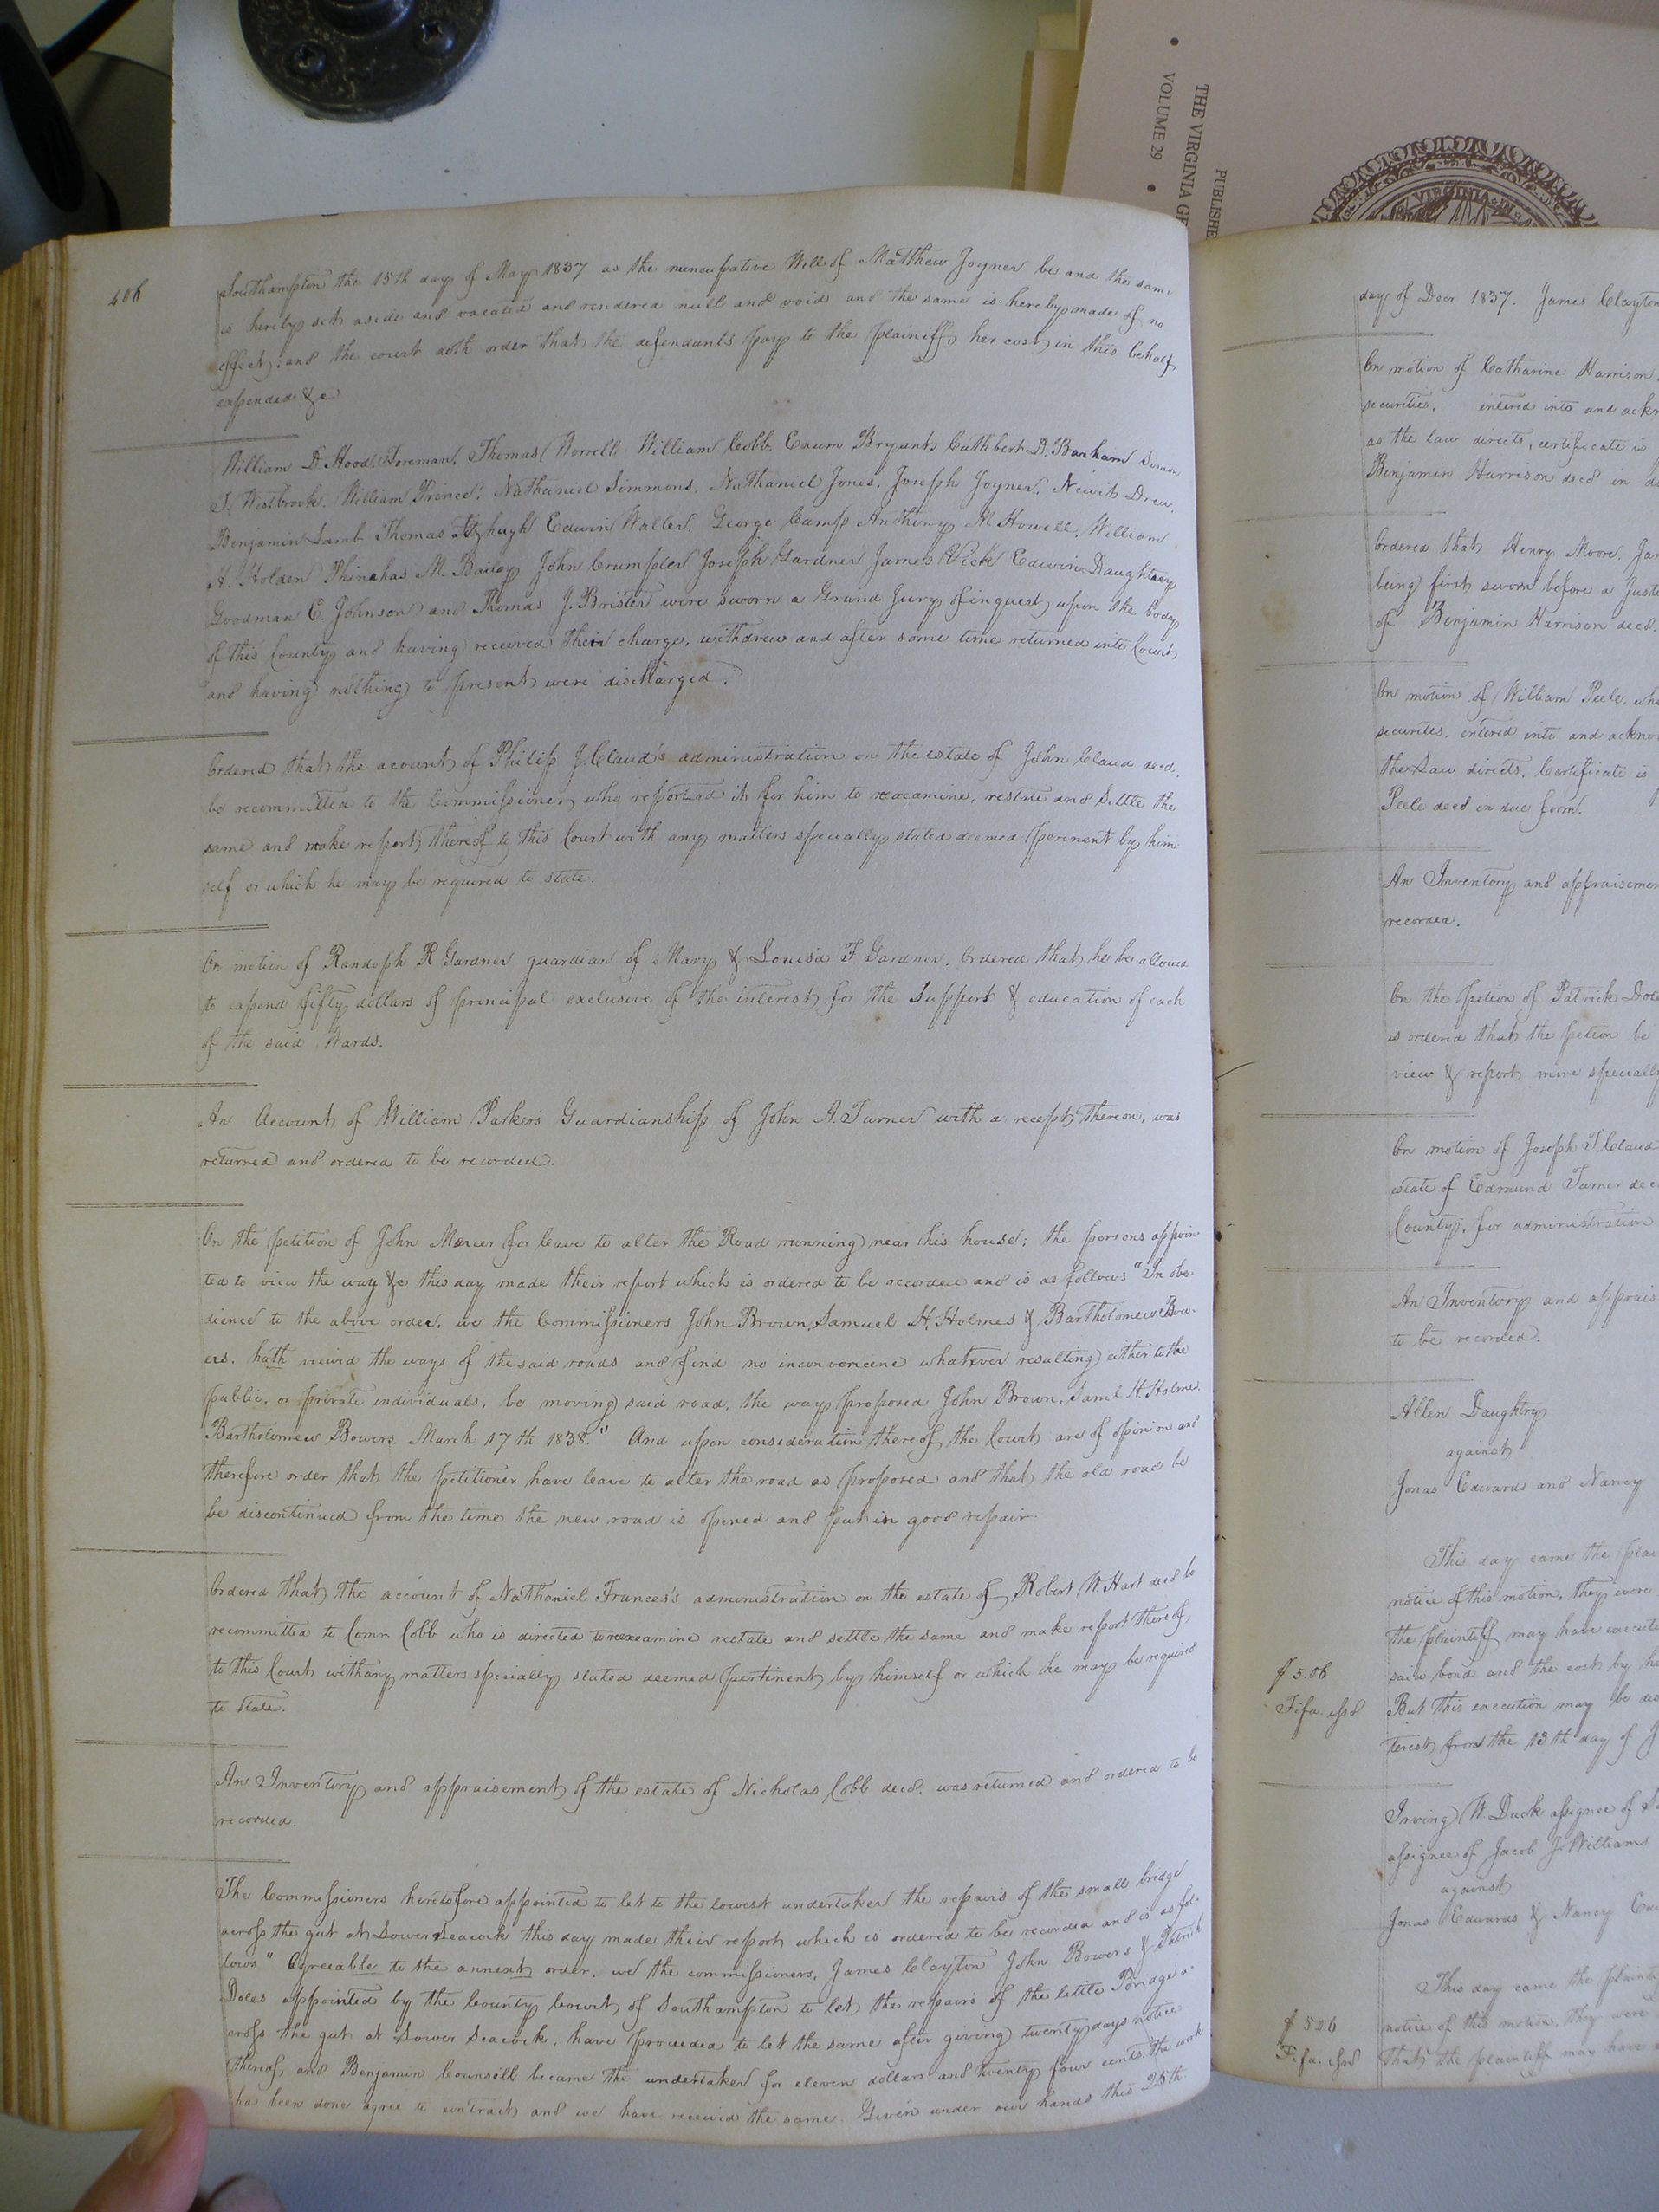 PUBLISHE
THE VIRGINIA GE
VOLUME 29
VIRGINIA IN
406
Southampton the 15th day of May 1837 as the nuncupative Will of Matthew Joyner be and the same
is hereby set aside and vacated and rendered null and void and the same is hereby made of no
effect; and the court doth order that the defendants pay to the plainiff, her cost in this behalf
expended &c
William D. Hood, Foreman, Thomas Worrell William Cobb, Exum Bryant, Cuthbert D. Barham Simon
T. Westbrook. William Prince. Nathaniel Simmons, Nathaniel Jones, Joseph Joyner, Newit Drew,
Benjamin Lamb Thomas Fitzhugh Edwin Waller, George Camp Anthony M. Howell, William
H. Holden Phinehas M. Bailey John Crumpler Joseph Gardner James Vick Edwin Daughtrey
Goodman E. Johnson and Thomas J. Brister were sworn a Grand Jury of inquest upon the body
of this County and having received their charge, withdrew and after some time returned into Court
and having nothing to present were discharged.
Ordered that the acount of Philip J. Claud's administration on the estate of John Claud decd.
be recommitted to the Commissioner who reported it for him to reexamine, restate and settle the
same and make report thereof to this Court with any matters specially stated deemed perinent by him
self or which he may be required to state.
On motion of Randolph R Gardner guardian of Mary & Louisa F Gardner. Ordered that he be allowed
to expend fifty dollars of principal exclusive of the interest for the support & education of each
of the said Wards.
An Account of William Parker's Guardianship of John A. Turner with a receipt thereon, was
returned and ordered to be recorded.
On the petition of John Mercer for leave to alter the Road running near his house; the persons appoin
ted to view the way &c this day made their report which is ordered to be recorded and is as follows "In obe-
dience to the above order, we the Commissioners John Brown, Samuel H. Holmes & Bartholomew Bow-
ers. hath viewed the ways of the said roads and find no inconvenience whatever resulting either to the
public, or private individuals, be moving said road, the way proposed John Brown, Saml H. Holmes
Bartholomew Bowers, March 17th 1838." And upon consideration thereof the Court are of opinion and
therefore order that the petitioner have leave to alter the road as proposed and that the old road be
be discontinued from the time the new road is opened and put in good repair.
Ordered that the account of Nathaniel Frances's administration on the estate of Robert W. Hart decd be
recommitted to Comr. Cobb who is directed to reexamine restate and settle the same and make report thereof,
to this Court with any matters specially stated deemed pertinent by himself or which he may be required
to state.
An Inventory and appraisement of the estate of Nicholas Cobb decd. was returned and ordered to be
recorded.
The Commissioners heretofore appointed to let to the lowest undertaker the repairs of the small bridge
across the gut at Lower Seacock this day made their report which is ordered to be recorded and is as fol-
lows "Agreeable to the annext order, we the commissioners, James Clayton John Bowers & Patrick
Doles appointed by the County Court of Southampton to let the repairs of the little Bridge a-
cross the gut at Lower Seacock, have proceeded to let the same after giving twenty days notice
thereof, and Benjamin Counsill became the undertaker for eleven dollars and twenty four cents. The work
has been done agree to contract and we have received the same. Given under our hands this 25th
day of Decr 1837. James Clayton
On motion of Catharine Harrison
securities, entered into and ackn
as the law directs, certificate is
Benjamin Harrison decd in d
Ordered that Henry Moore, Jam
being first sworn before a Justi
of Benjamin Harrison decd.
On motion of William Peele, wh
securites, entered into and ackno
the Law directs. Certificate is
Peele decd in due form.
An Inventory and appraisemen
recorded.
On the petion of Patrick Dol
is ordered that the petion be
view & report more specially
On motion of Joseph T. Claud
estate of Edmund Turner dec
County, for administration
An Inventory and apprais
to be recorded.
Allen Daughtry
against
Jonas Edwards and Nancy
This day came the plai
notice of this motion, they were
the plaintiff may have executi
$5.06
said bond and the cost by h
Fifa. issd
But this execution may be dis
terest from the 13th day of J
Irving W. Duck assignee of
assignee of Jacob J. Williams
against
Jonas Edwards & Nancy Edw
This day came the plainti
$506
notice of this motion, they were
Fifa. issd
that the plaintiff may have